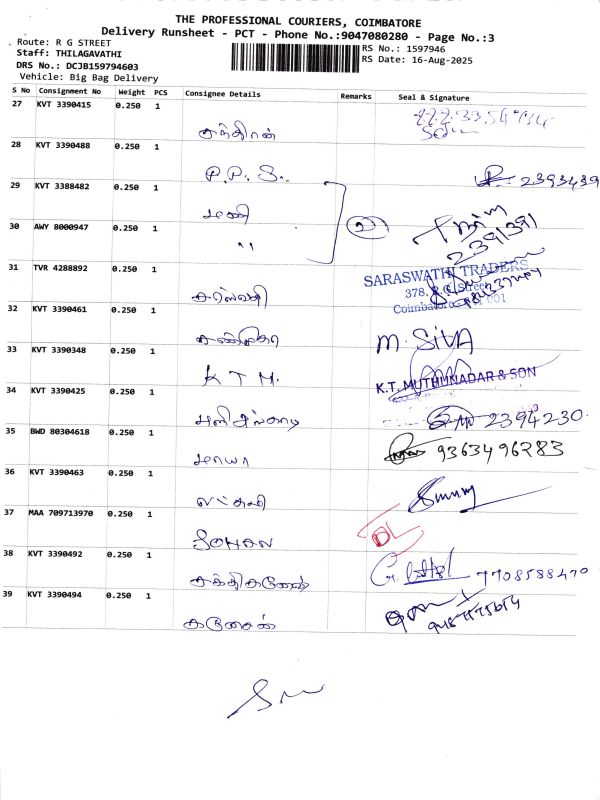 THE PROFESSIONAL COURIERS, COIMBATORE
Delivery Runsheet - PCT - Phone No.:9047080280 - Page No.:3
Route: R G STREET
RS No.: 1597946
Staff: THILAGAVATHI
RS Date: 16-Aug-2025
DRS No.: DCJB159794603
Vehicle: Big Bag Delivery
S No Consignment No Weight PCS Consignee Details Remarks Seal & Signature
27 KVT 3390415 0.250 1
28 KVT 3390488 0.250 1
P.P.S. 2393439
29 KVT 3388482 0.250 1
மணி
30 AWY 8000947 0.250 1
" 2 2391391
31 TVR 4288892 0.250 1
SARASWATHI TRADERS
சரஸ்வதி 378, Street
Coimbatore 001
32 KVT 3390461 0.250 1
M. SIVA
33 KVT 3390348 0.250 1
K T M. K.T. MUTHUNADAR & SON
34 KVT 3390425 0.250 1
2394230
35 BWD 80304618 0.250 1
மாயா 9363496283
36 KVT 3390463 0.250 1
லட்சுமி
37 MAA 709713970 0.250 1
SOHAN DL
38 KVT 3390492 0.250 1
சக்திகணேஷ் 7708588470
39 KVT 3390494 0.250 1
கணேசன்